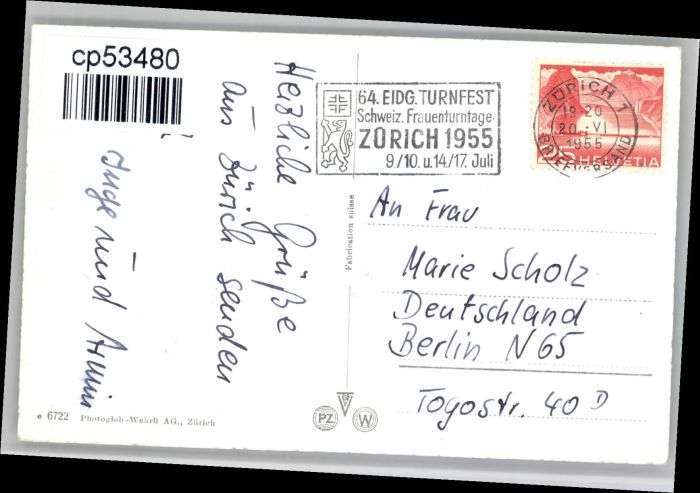 cp53480
Herzliche Grüße
aus Zürich senden
Inge und Armin
64. EIDG. TURNFEST
Schweiz. Frauenturntage
ZÜRICH 1955
9/10. u. 14/17. Juli
ZÜRICH 1
19-20
20.-VI
1955
BRIEFVERSAND
HELVETIA
Fabrication suisse
An Frau
Marie Scholz
Deutschland
Berlin N65
Togostr. 40D
e 6722 Photoglob-Wehrli AG., Zürich
PZ
W